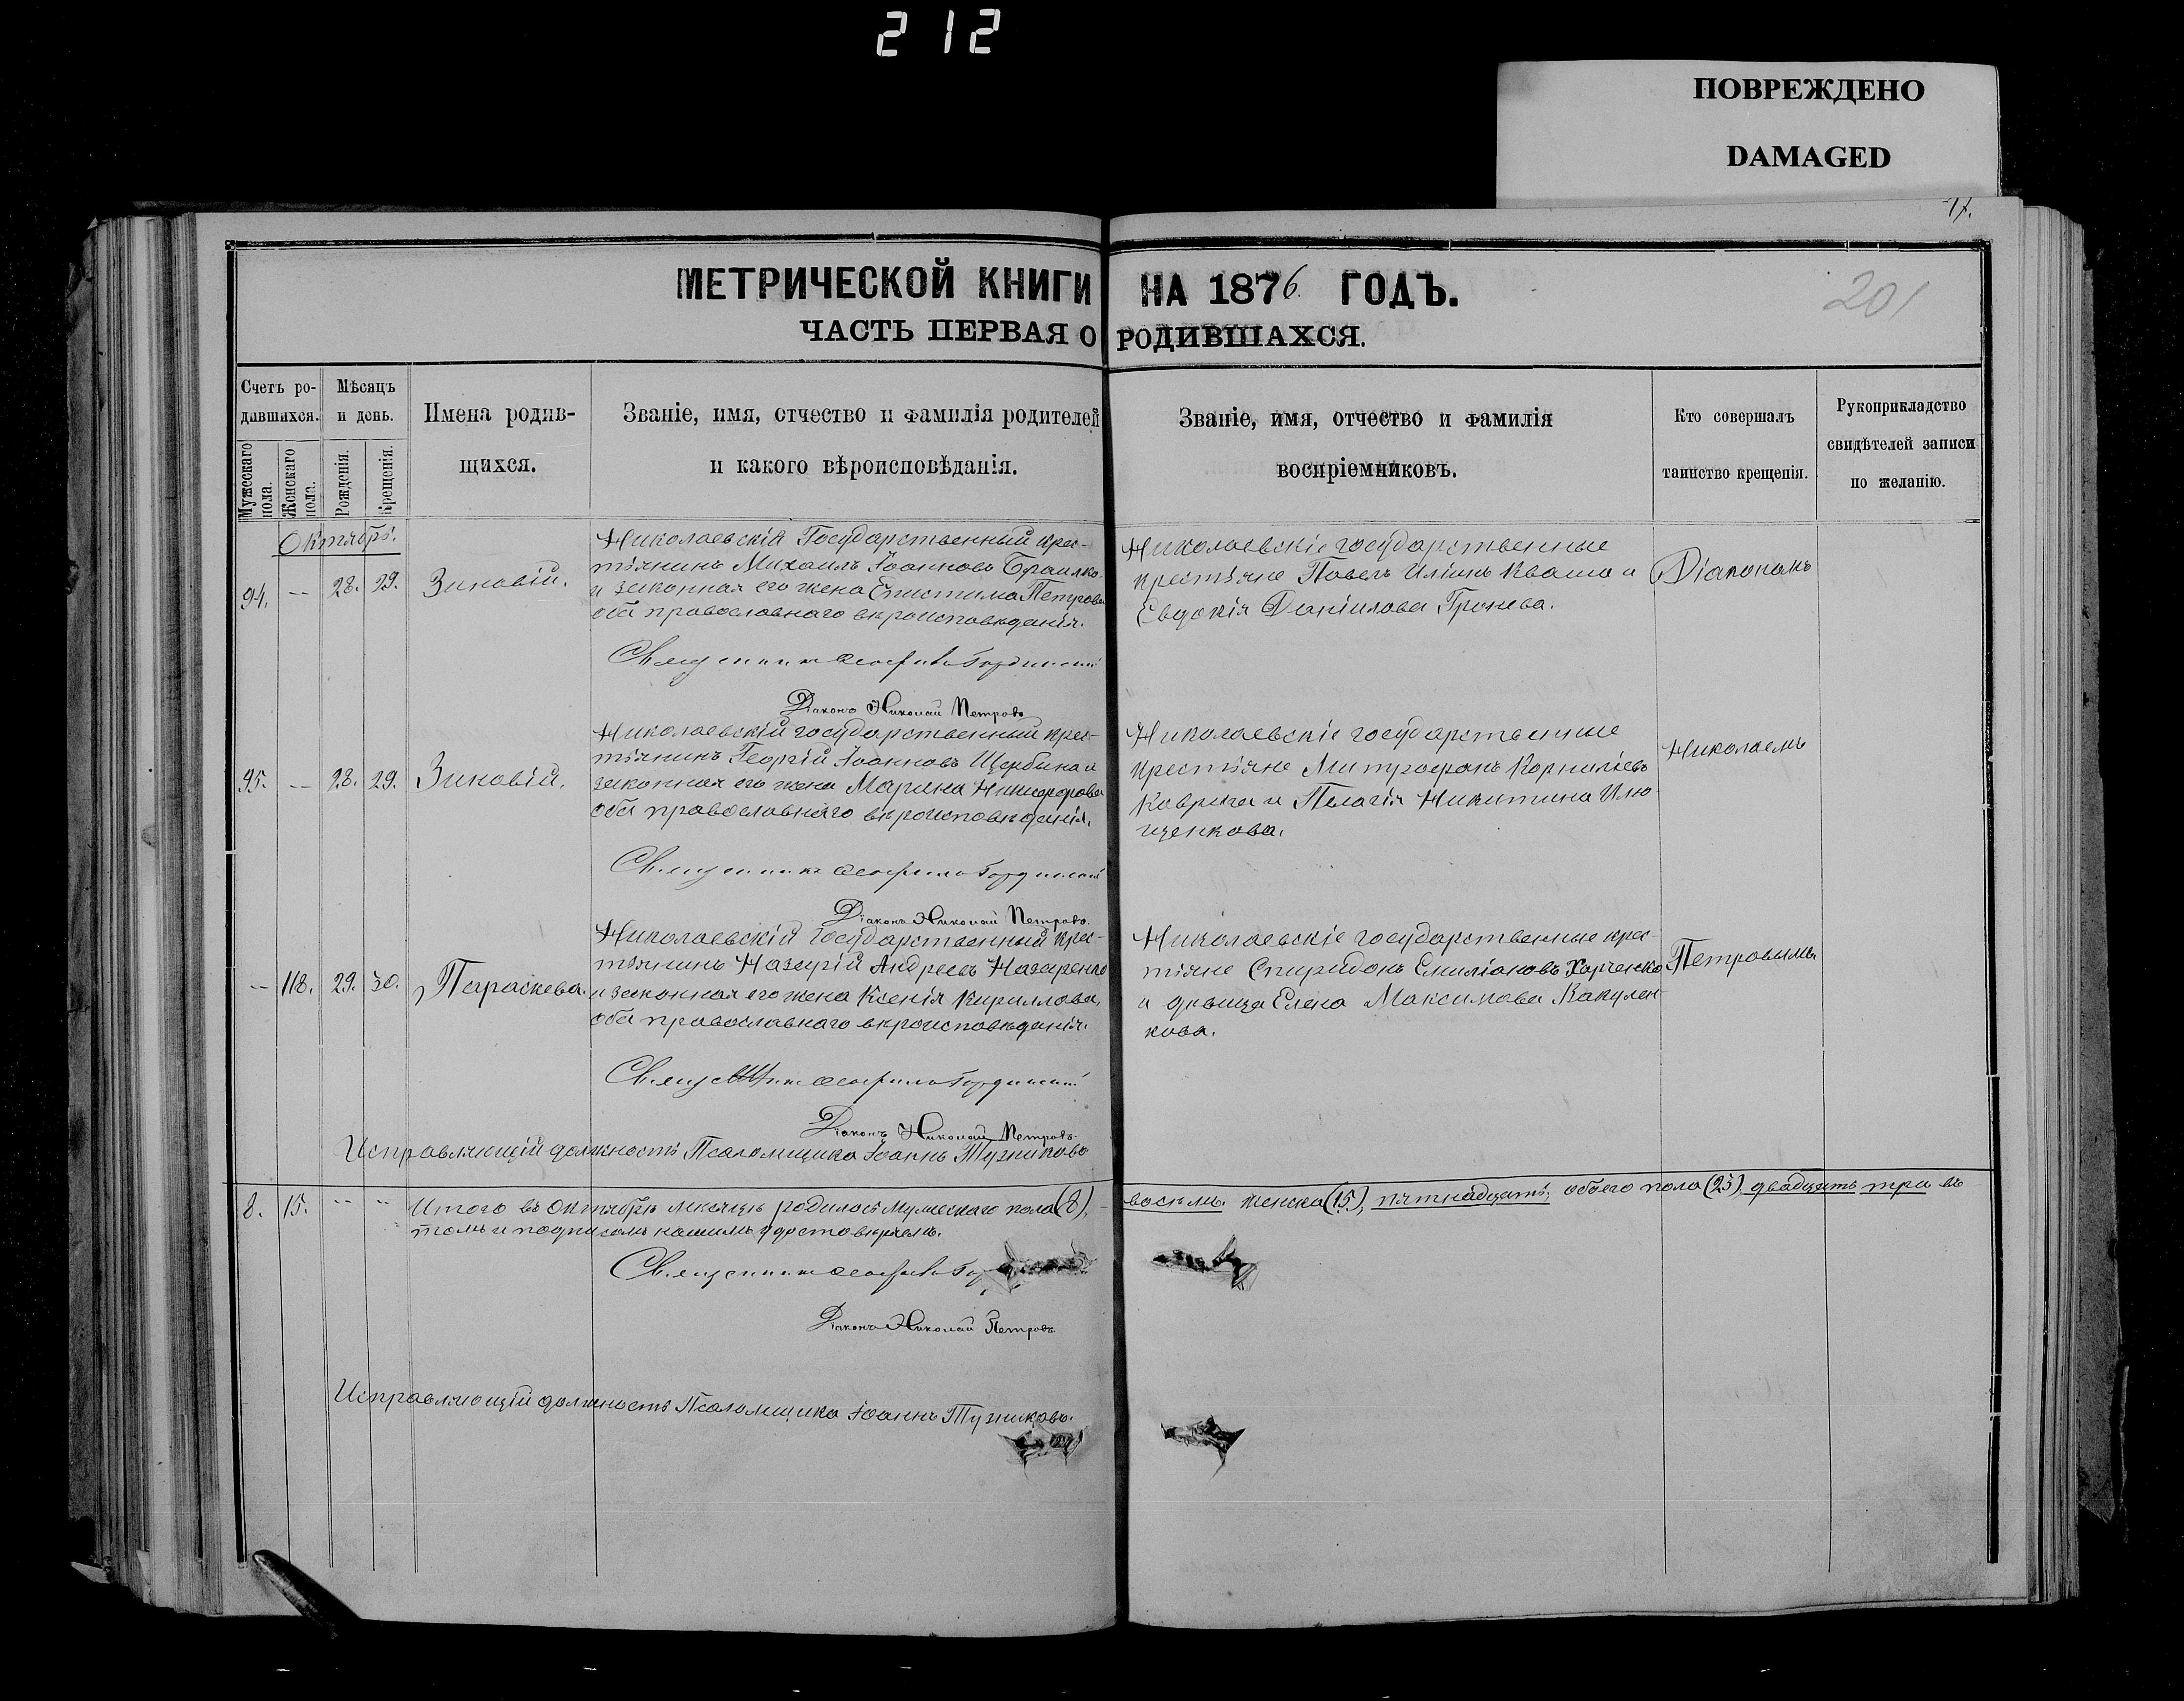 212
ПОВРЕЖДЕНО
DAMAGED
201
МЕТРИЧЕСКОЙ КНИГИ НА 1876 ГОДЪ.
ЧАСТЬ ПЕРВАЯ О РОДИВШАХСЯ.
Счетъ ро-
дившихся.
Мужескаго пола.
Женскаго пола.
Мѣсяцъ
и день.
Рожденія.
Крещенія.
Имена родив-
щихся.
Званіе, имя, отчество и фамилія родителей
и какого вѣроисповѣданія.
Званіе, имя, отчество и фамилія
воспріемниковъ.
Кто совершалъ
таинство крещенія.
Рукоприкладство
свидѣтелей записи
по желанію.
Октябрь.
94. -- 28. 29. Зиновій.
Николаевскій Государственный крес-
тьянинъ Михаилъ Іоанновъ Браилко
и законная его жена Епистима Петрова
оба православнаго вѣроисповѣданія.
Священникъ Гординскій
Діаконъ Николай Петровъ
Николаевскіе государственные
крестьяне Павелъ Иліинъ Кваша и
Евдокія Даніилова Гронева.
Діакономъ
95. -- 28. 29. Зиновій.
Николаевскій государственный крес-
тьянинъ Георгій Іоанновъ Щербина и
законная его жена Марина Никифорова
оба православнаго вѣроисповѣданія.
Священникъ Гординскій
Діаконъ Николай Петровъ.
Николаевскіе государственные
крестьяне Митрофанъ Корниліевъ
Коврига и Пелагія Никитина Илю-
щенкова.
Николаемъ
-- 118. 29. 30. Параскева.
Николаевскій государственный крес-
тьянинъ Назарій Андреевъ Назаренко
и законная его жена Ксенія Кириллова,
оба православнаго вѣроисповѣданія.
Священникъ Гординскій
Діаконъ Николай Петровъ.
Исправляющій должность Псаломщика Іоаннъ Тузниковъ
Николаевскіе государственные крес-
тьяне Спиридонъ Емиліановъ Харченко
и дѣвица Елена Максимова Вакулен-
кова.
Петровымъ.
8. 15. -- -- Итого въ октябрѣ мѣсяцѣ родилось мужескаго пола (8), восемь. женска (15), пятнадцать, обоего пола (23) двадцать три въ
томъ и подписомъ нашимъ удостовѣряемъ.
Священникъ
Діаконъ Николай Петровъ.
Исправляющій должность Псаломщика Іоаннъ Тузниковъ.